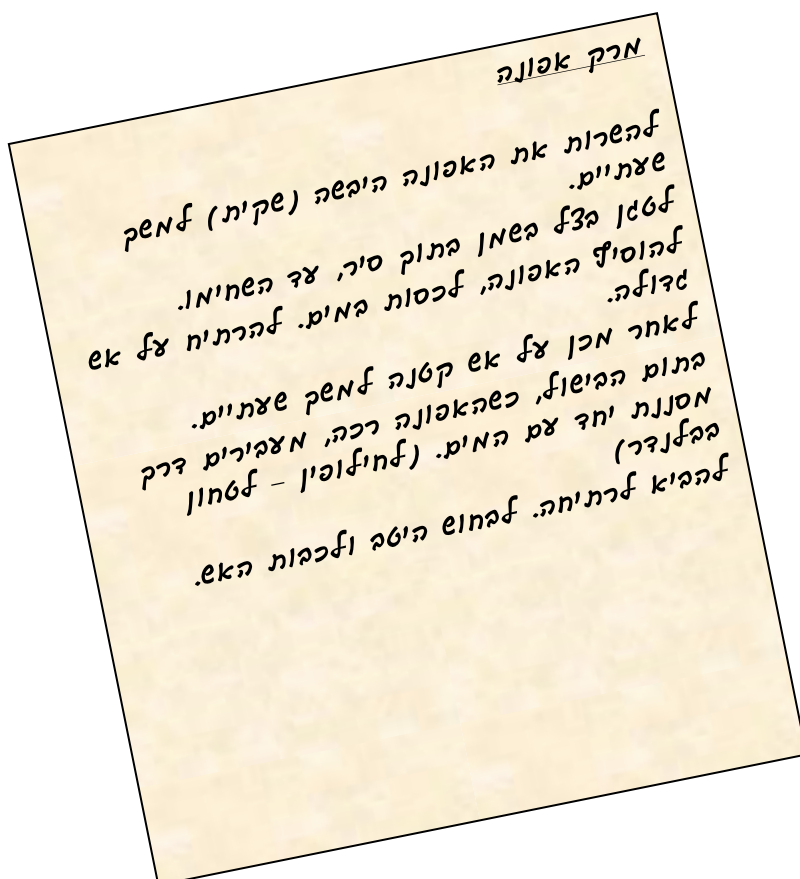 מרק אפונה
להשרות את האפונה היבשה (שקית) למשך
שעתיים.
לטגן בצל בשמן בתוך סיר, עד השחימו.
להוסיף האפונה, לכסות במים. להרתיח על אש
גדולה.
לאחר מכן על אש קטנה למשך שעתיים.
בתום הבישול, כשהאפונה רכה, מעבירים דרך
מסננת יחד עם המים. (לחילופין – לטחון
בבלנדר)
להביא לרתיחה. לבחוש היטב ולכבות האש.